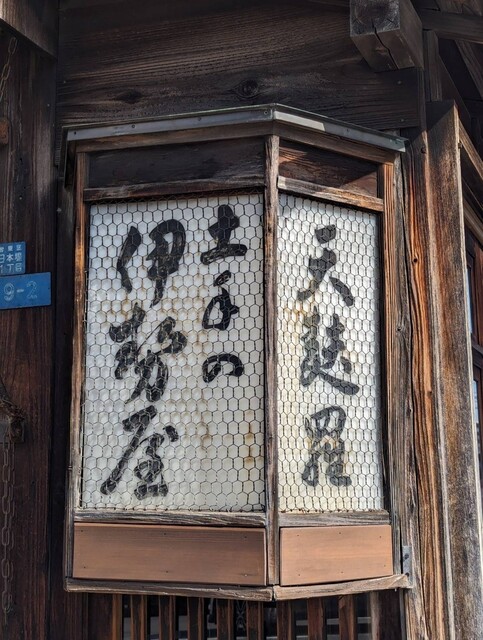 天麩羅
土手の
伊勢屋
日本堤
丁目
9-2